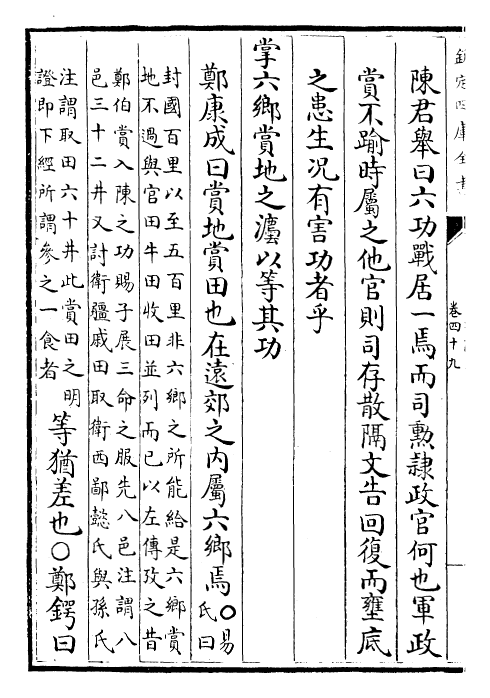 欽定四庫全書
卷四十九
陳君舉曰六功戰居一焉而司勲隷政官何也軍政
賞不踰時屬之他官則司存散隔文告回復而壅底
之患生况有害功者乎
掌六鄉賞地之灋以等其功
鄭康成曰賞地賞田也在遠郊之内屬六鄉焉〇易氏曰
封國百里以至五百里非六鄉之所能給是六鄉賞
地不過與官田牛田收田並列而已以左傳攷之昔
鄭伯賞入陳之功賜子展三命之服先八邑注謂八
邑三十二井又討衛疆戚田取衛西鄙懿氏與孫氏
注謂取田六十井此賞田之明
證即下經所謂參之一食者
等猶差也〇鄭鍔曰